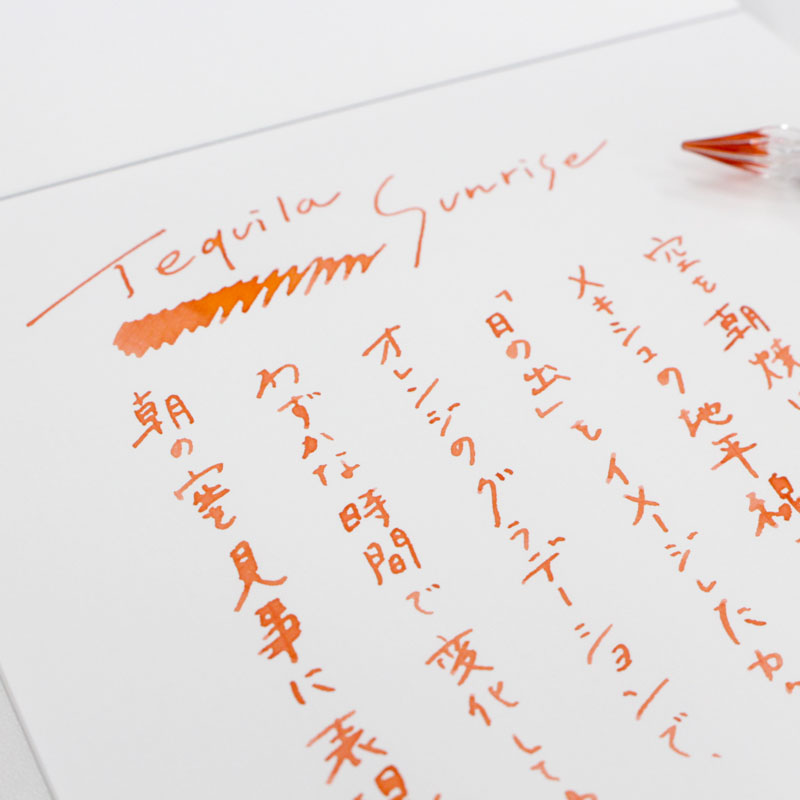 Tequila Sunrise
空を朝焼
メキシコの地平線
「日の出」をイメージしたカ
オレンジのグラデーションで、
わずかな時間で変化して
朝の空を見事に表現